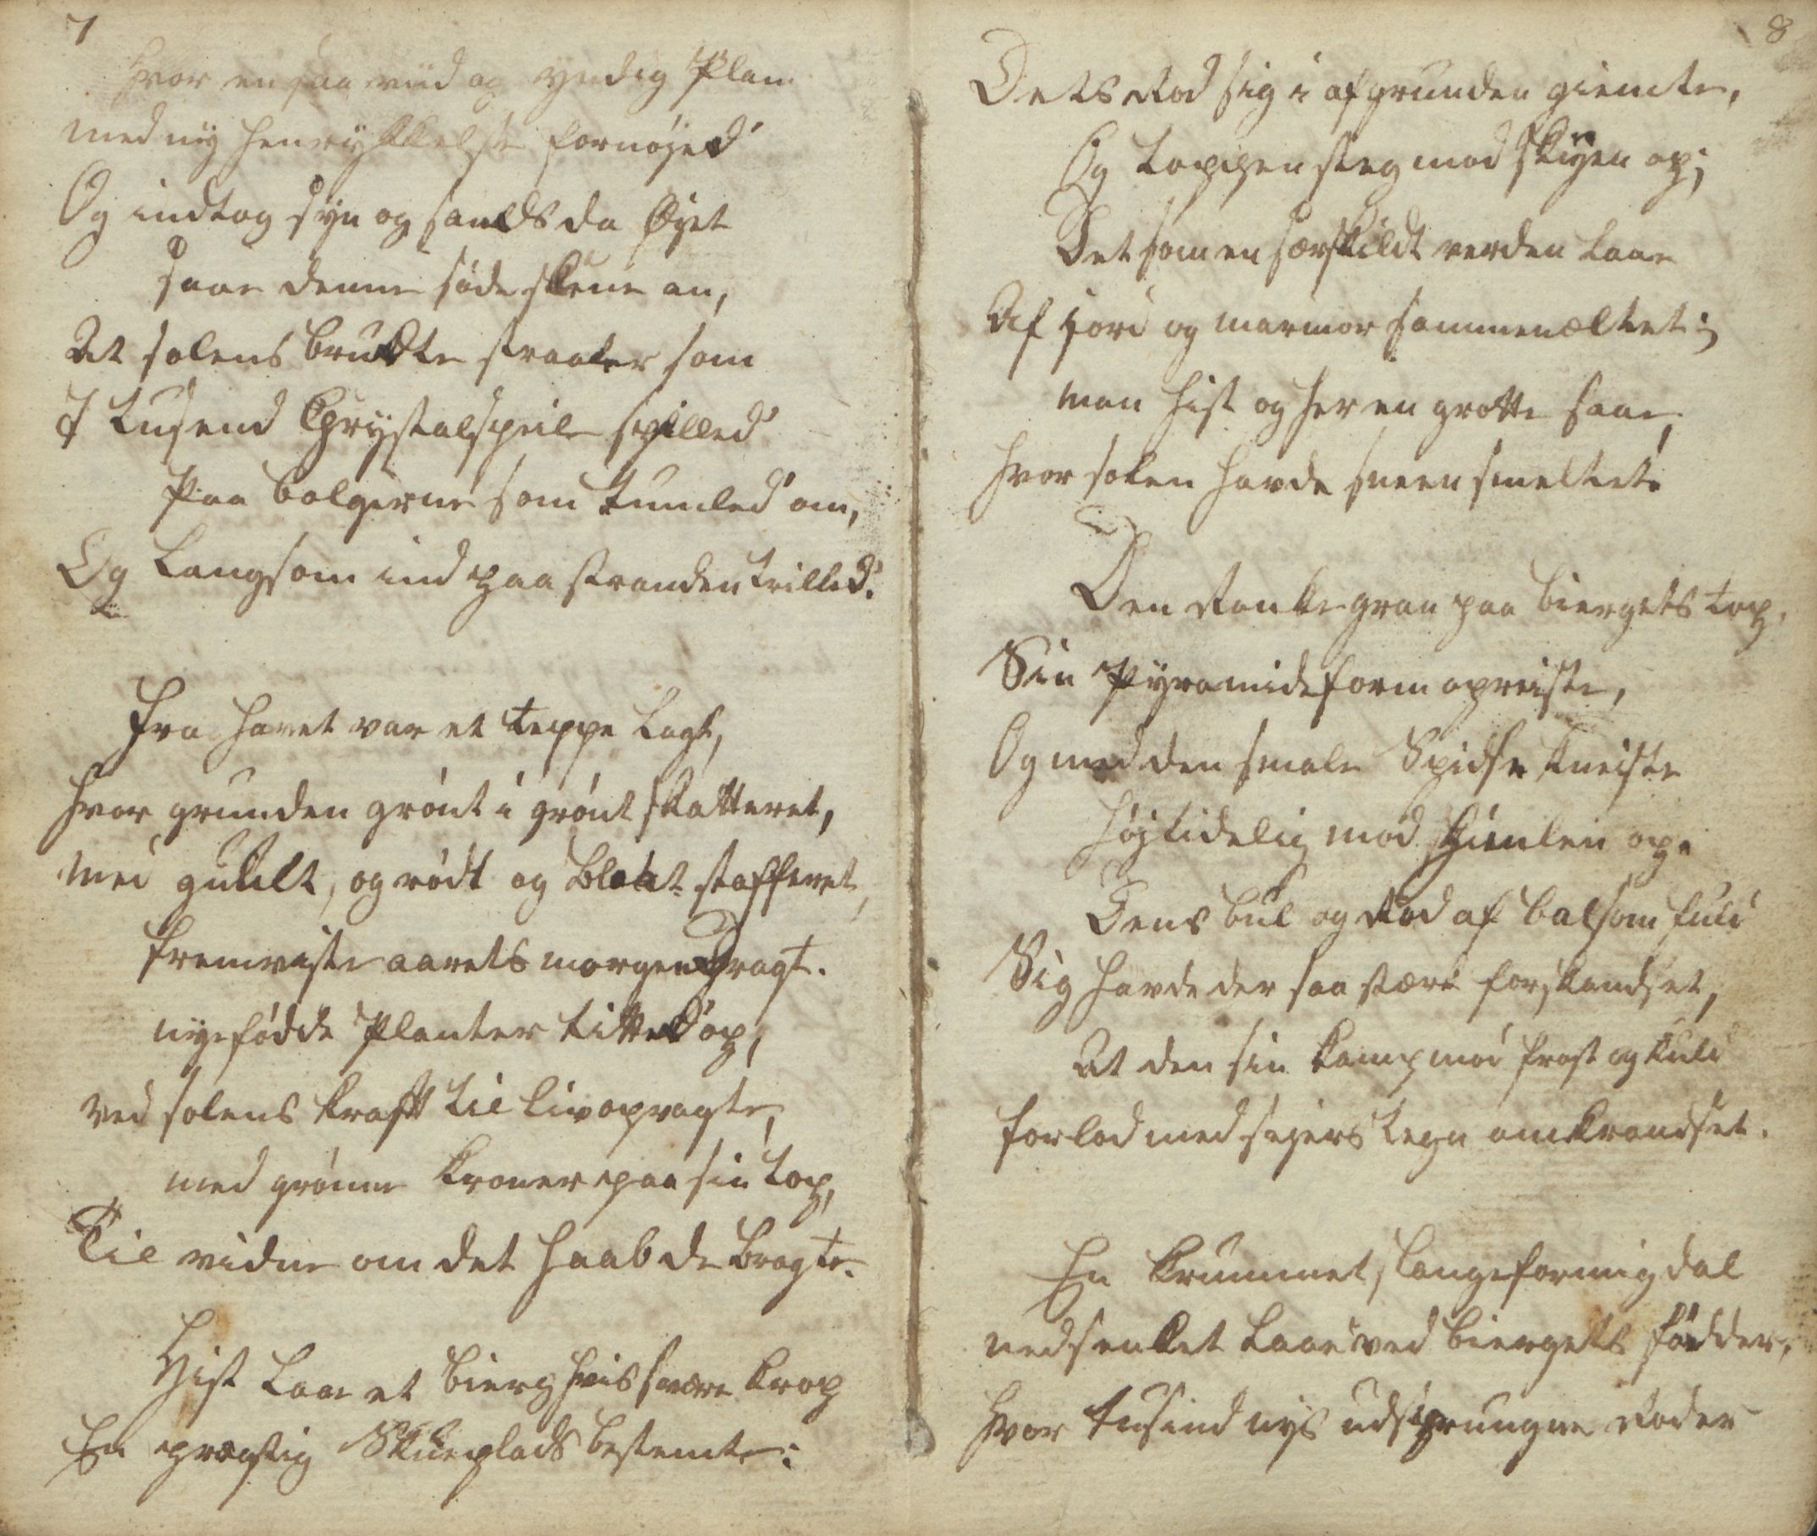 7
Hvor en saa viid og yndig Plan
med ny henrykkelse fornøyed'
Og indtog syn og sands da Øyet
saae denne søde skiene an,
At solens brudte straaler som
I tusend Chrystalspeile spilled'
Paa bølgerne som tumled' om,
Og langsom ind paa stranden trilled'.
Fra havet var et teppe lagt,
Hvor grunden grønt i grønt skatteret,
med guult, og rødt og blaat stafferet,
fremviste aarets morgendragt.
nyefødde Planter titted' op,
ved solens kraft til liv opvagte,
med grønne kroner paa sin top,
Til vidne om det haab de bragte.
Hist laae et bierg hvis svære krop
En prægtig Skueplads bestemte:
8
Dets Rod sig i afgrunden giemte,
Og toppen steg mod skyen op;
Det som en særskildt verden laae
Af jord og marmor sammenæltet;
man hist og her en grotte saae,
Hvor solen havde sneen smeltet.
Den ranke gran paa biergets top,
Sin Pyramideform opreiste,
Og med den smale Spidse kneiste
høytidelig mod himlen op.
Dens bul og Rod af balsom fuld
Sig havde der saa stærk forskandset,
At den sin kamp mod frost og kuld
forlod med sejers tegn omkrandset.
En krummet, slangeformig dal
nedsenket laae ved biergets fødder,
Hvor tusind nys udsprungne Roder